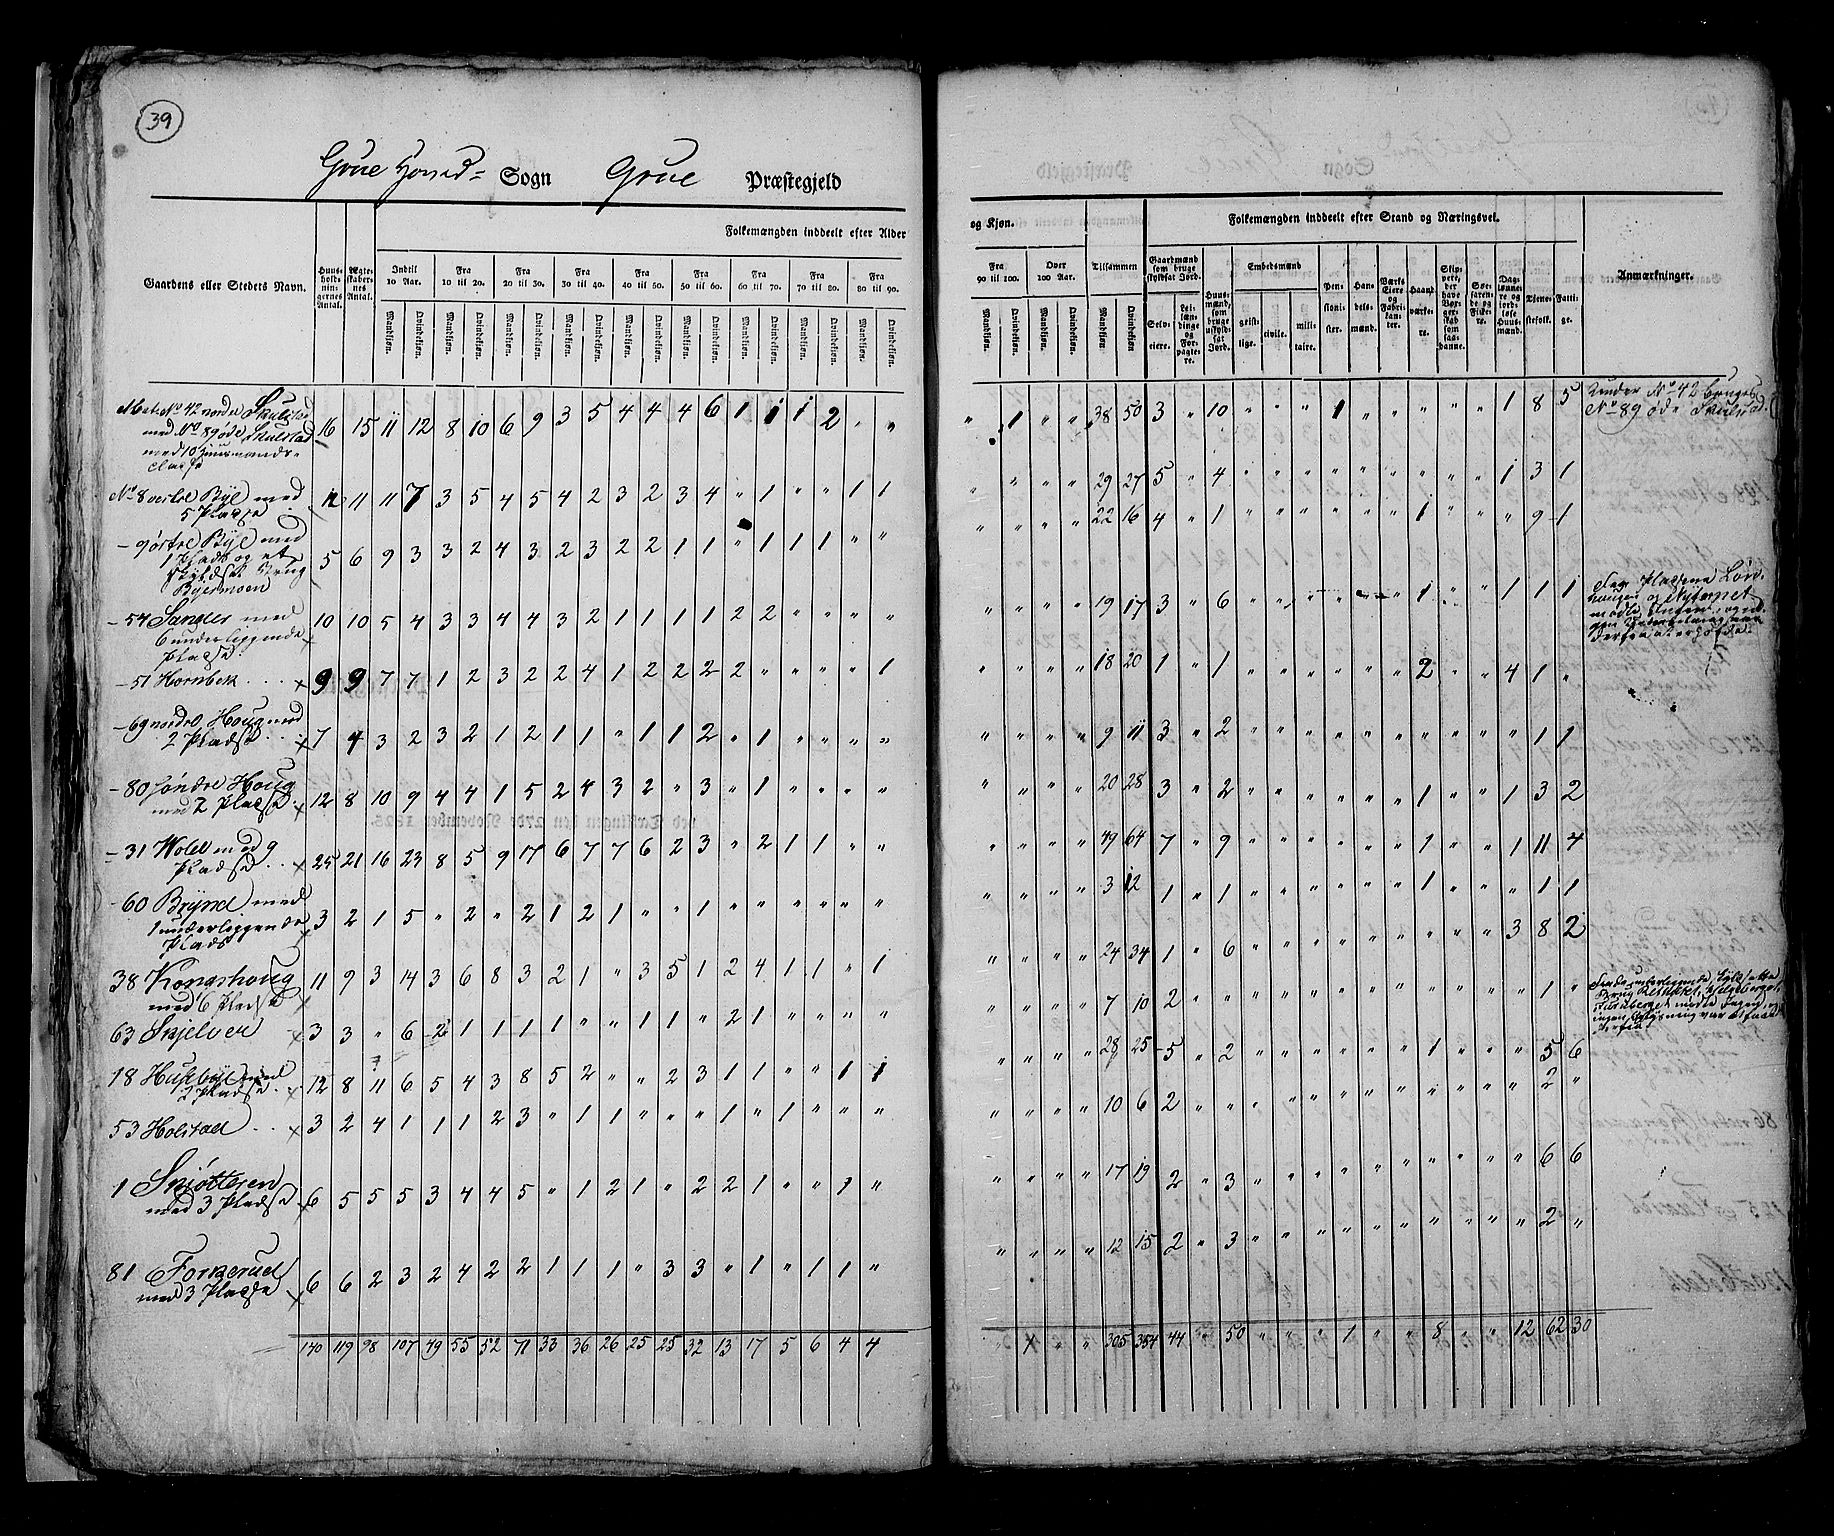 39
Grue Hoved= Sogn Grue Præstegjeld
og Kjøn.
Folkemængden inddeelt efter Stand og Næringsvei.
Folkemængden inddeelt efter Alder
Gaardens eller Stedets Navn.
Huusholdningernes Antal.
Ægteskabernes Antal.
Indtil 10 Aar.
Fra 10 til 20.
Fra 20 til 30.
Fra 30 til 40.
Fra 40 til 50.
Fra 50 til 60.
Fra 60 til 70.
Fra 70 til 80.
Fra 80 til 90.
Fra 90 til 100.
Over 100 Aar.
Tilsammen
Mandkjøn. Qvindekjøn.
Gaardmænd som bruge skyldsat Jord.
Selveiere.
Leilændinge og Forpagtere.
Huusmænd, som bruge uskyldsat Jord.
Embedsmænd
geistlige. civile. militaire.
Pensionister.
Handelsmænd.
Værks Eiere og Fabrikanter.
Haandværkere.
Skippere, der have Borgerskab som saadanne.
Søefarende og Fiskere.
Daglønnere og jordløse Huusmænd.
Tjenestefolk.
Fattige.
Anmærkninger.
Mat. No 42 nordre Skulstad 16 15 11 12 8 10 6 9 3 5 4 4 4 6 1 1 1 2 " " " 1 " " 38 50 3 " 10 " " " 1 " " " " " 1 8 5 Under No 42 bruges
med No 89 øde Skulstad No 89 øde Skulstad.
med 10 Huusmands=
pladse
No 8 vestre Bye med 12 11 11 7 3 5 4 5 4 2 3 2 3 4 " 1 " " 1 1 " " " " 29 27 5 " 4 " " " " " " " " " 1 3 1
5 Pladse
- 9 østre Bye med 5 6 9 3 3 2 4 3 2 3 2 2 1 1 " 1 1 1 " " " " " " 22 16 4 " 1 " " " " " " 1 " " " 9 1
1 Plads og et
skyldsat Brug
Byermoen
- 54 Sander med 10 10 5 4 3 3 4 4 3 2 1 1 1 1 2 2 " " " " " " " " 19 17 3 " 6 " " " " " " 1 " " 1 1 1
6 underliggende
Pladse
- 51 Hornbek 9 9 7 7 1 2 3 2 2 4 1 2 2 2 2 " " " " 1 " " " " 18 20 1 " 1 " " " " " " 2 " " 4 1 "
- 69 nordre Houg med 7 4 3 2 3 2 1 2 1 1 " 1 1 2 " 1 " " " " " " " " 9 11 3 " 2 " " " " " " " " " " 1 1
2 Pladse
- 80 søndre Houg 12 8 10 9 4 4 1 5 2 4 3 2 " 3 " 1 " " " " " " " " 20 28 3 " 2 " " " " " " 1 " " 1 3 2
med 2 Pladse
- 31 Wold med 9 25 21 16 23 8 5 9 17 6 7 7 6 2 3 " 2 1 1 " " " " " " 49 64 7 " 9 " " " " " " 1 " " 1 11 4
Pladse
- 60 Brynd med 3 2 1 5 " 2 " 2 1 2 1 " " 1 " " " " " " " " " " 3 12 1 " 1 " " " " " " 1 " " " 1 1
1 underliggende
Plads
38 Kongshoug 11 9 3 14 3 6 8 3 2 1 " 3 5 1 2 4 1 1 " 1 " " " " 24 34 1 " 6 " " " " " " " " " 3 8 2
med 6 Pladse
63 Skjelver 3 3 " 6 2 1 1 1 1 " " 1 1 " 2 1 " " " " " " " " 7 10 2 " " " " " " " " " " " " 1 "
18 Husebye med 12 8 11 6 5 4 3 8 5 2 " " 2 3 1 1 " " 1 1 " " " " 28 25 5 " 2 " " " " " " 1 " " " 5 6
2 Pladse
53 Holstad 3 2 4 1 1 1 2 3 " 1 1 " " " " 1 " 1 " " " " " " " 10 6 2 " " " " " " " " " " " " 2 "
1 Skjøttegen 6 5 5 5 3 4 4 5 " 1 2 1 " 2 2 1 " " 1 " " " " " 17 19 2 " 3 " " " " " " " " " " 6 6
med 3 Pladse
81 Forkerud 6 6 2 3 2 4 2 2 1 1 1 " 3 3 " 1 " 1 1 " " " " " 12 15 2 " 3 " " " " " " " " " " 2 "
med 3 Pladse
140 119 98 107 49 55 52 71 33 36 26 25 25 32 13 17 5 6 4 4 " " " 305 354 44 " 50 " " " 1 " " 8 " " 12 62 30